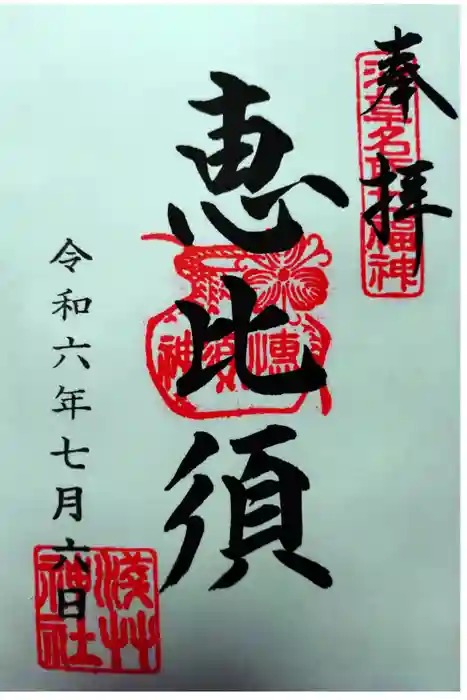 奉拝
浅草名所七福神
恵比須
恵比須神
令和六年七月六日
浅草神社